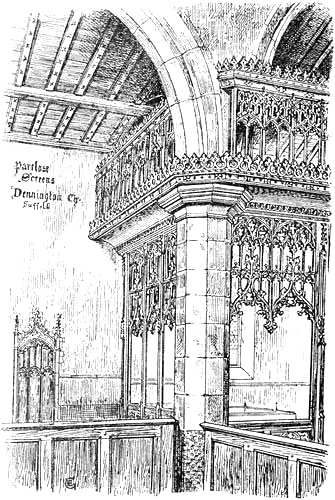 Parclose
Screens
Dennington Ch.
Suffolk